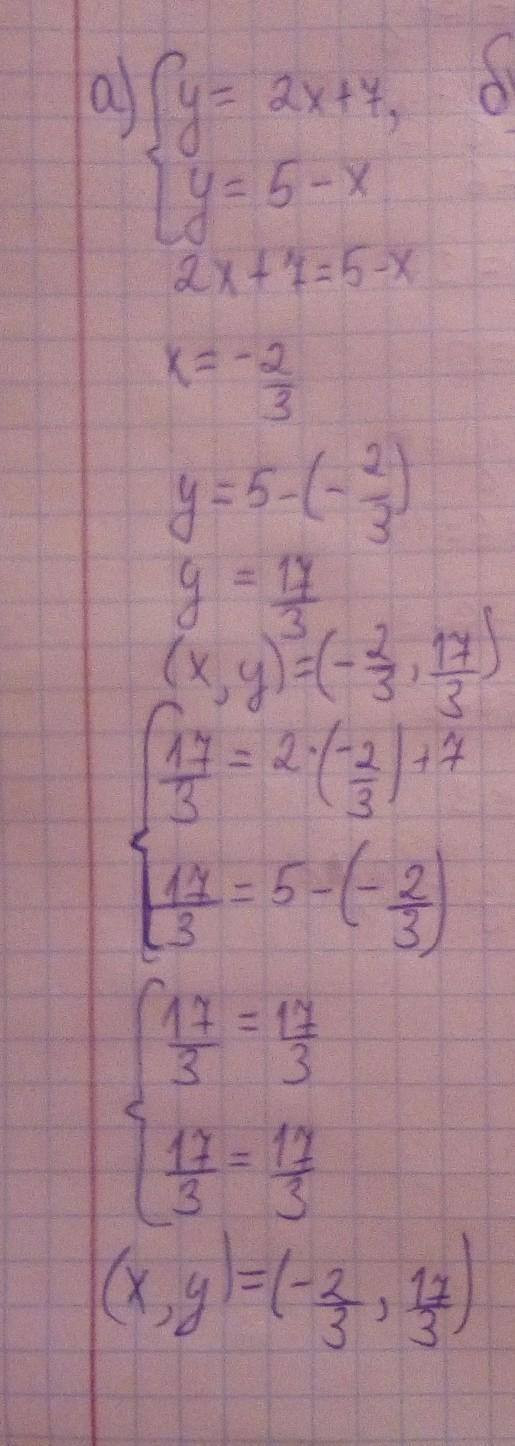 а) { y = 2x+7, б
y = 5 - x
2x + 7 = 5 - x
x = - 2/3
y = 5 - (- 2/3)
y = 17/3
(x, y) = (- 2/3, 17/3)
{ 17/3 = 2 · (-2/3) + 7
17/3 = 5 - (- 2/3)
{ 17/3 = 17/3
17/3 = 17/3
(x, y) = (- 2/3, 17/3)